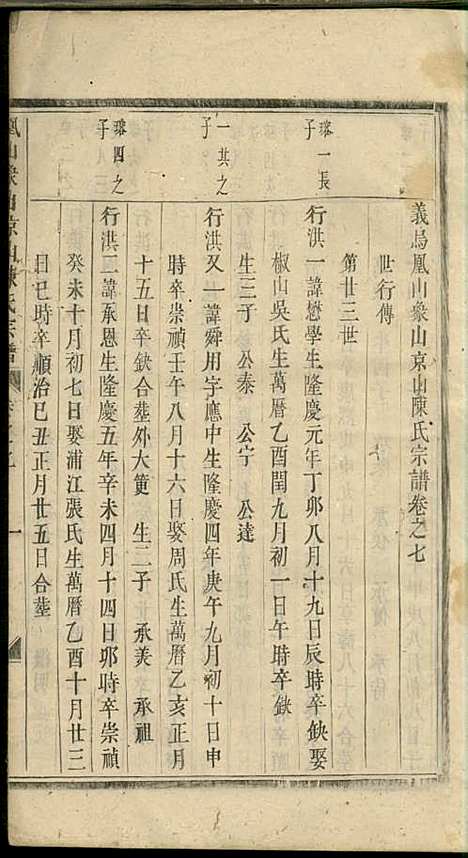 義烏鳳山象山京山陳氏宗譜卷之七
世行傳
第廿三世
瑢一長子
行洪一諱懋學生隆慶元年丁卯八月十九日辰時卒缺娶
椒山吳氏生萬曆乙酉閏九月初一日午時卒缺
生三子 公泰 公宁 公達
一其之子
行洪又一諱舜用字應中生隆慶四年庚午九月初十日申
時卒崇禎壬午八月十六日娶周氏生萬曆乙亥正月
十五日卒缺合塟外大㙮 生二子 承美 承祖
瑢四之子
行洪二諱承恩生隆慶五年辛未四月十四日卯時卒崇禎
癸未十月初七日娶浦江張氏生萬曆乙酉十月廿三
日巳時卒順治己丑正月廿五日合塟
鳳山象山京山陳氏宗譜 卷之七 一